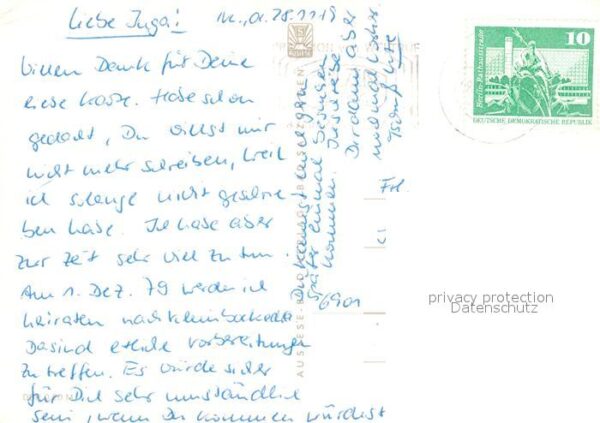 Liebe Inga!
Vielen Dank für Deine
liebe Karte. Habe schon
gedacht, Du willst mir
nicht mehr schreiben, weil
ich solange nicht geschrie-
ben habe. Ich habe aber
zur Zeit sehr viel zu tun.
Am 1. Dez. 79 werde ich
heiraten nach
Da sind etliche Vorbereitungen
zu treffen. Es würde sicher
für Dich sehr umständlich
sein, wenn Du kommen würdest
Du kannst mich gern
später einmal besuchen
kommen.
aber
nochmal
Frl.
6901
10
Berlin-Rathausstraße
DEUTSCHE DEMOKRATISCHE REPUBLIK
privacy protection
Datenschutz